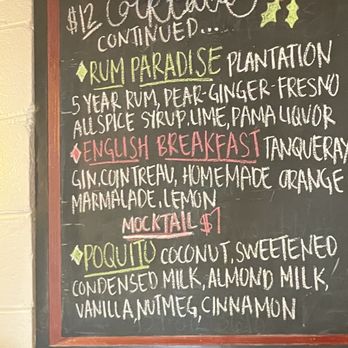 $12 COCKTAILS
CONTINUED...
RUM PARADISE PLANTATION
5 YEAR RUM, PEAR-GINGER-FRESNO
ALLSPICE SYRUP, LIME, PAMA LIQUOR
ENGLISH BREAKFAST TANQUERAY
GIN, COINTREAU, HOMEMADE ORANGE
MARMALADE, LEMON
MOCKTAIL $7
POQUITO COCONUT, SWEETENED
CONDENSED MILK, ALMOND MILK,
VANILLA, NUTMEG, CINNAMON